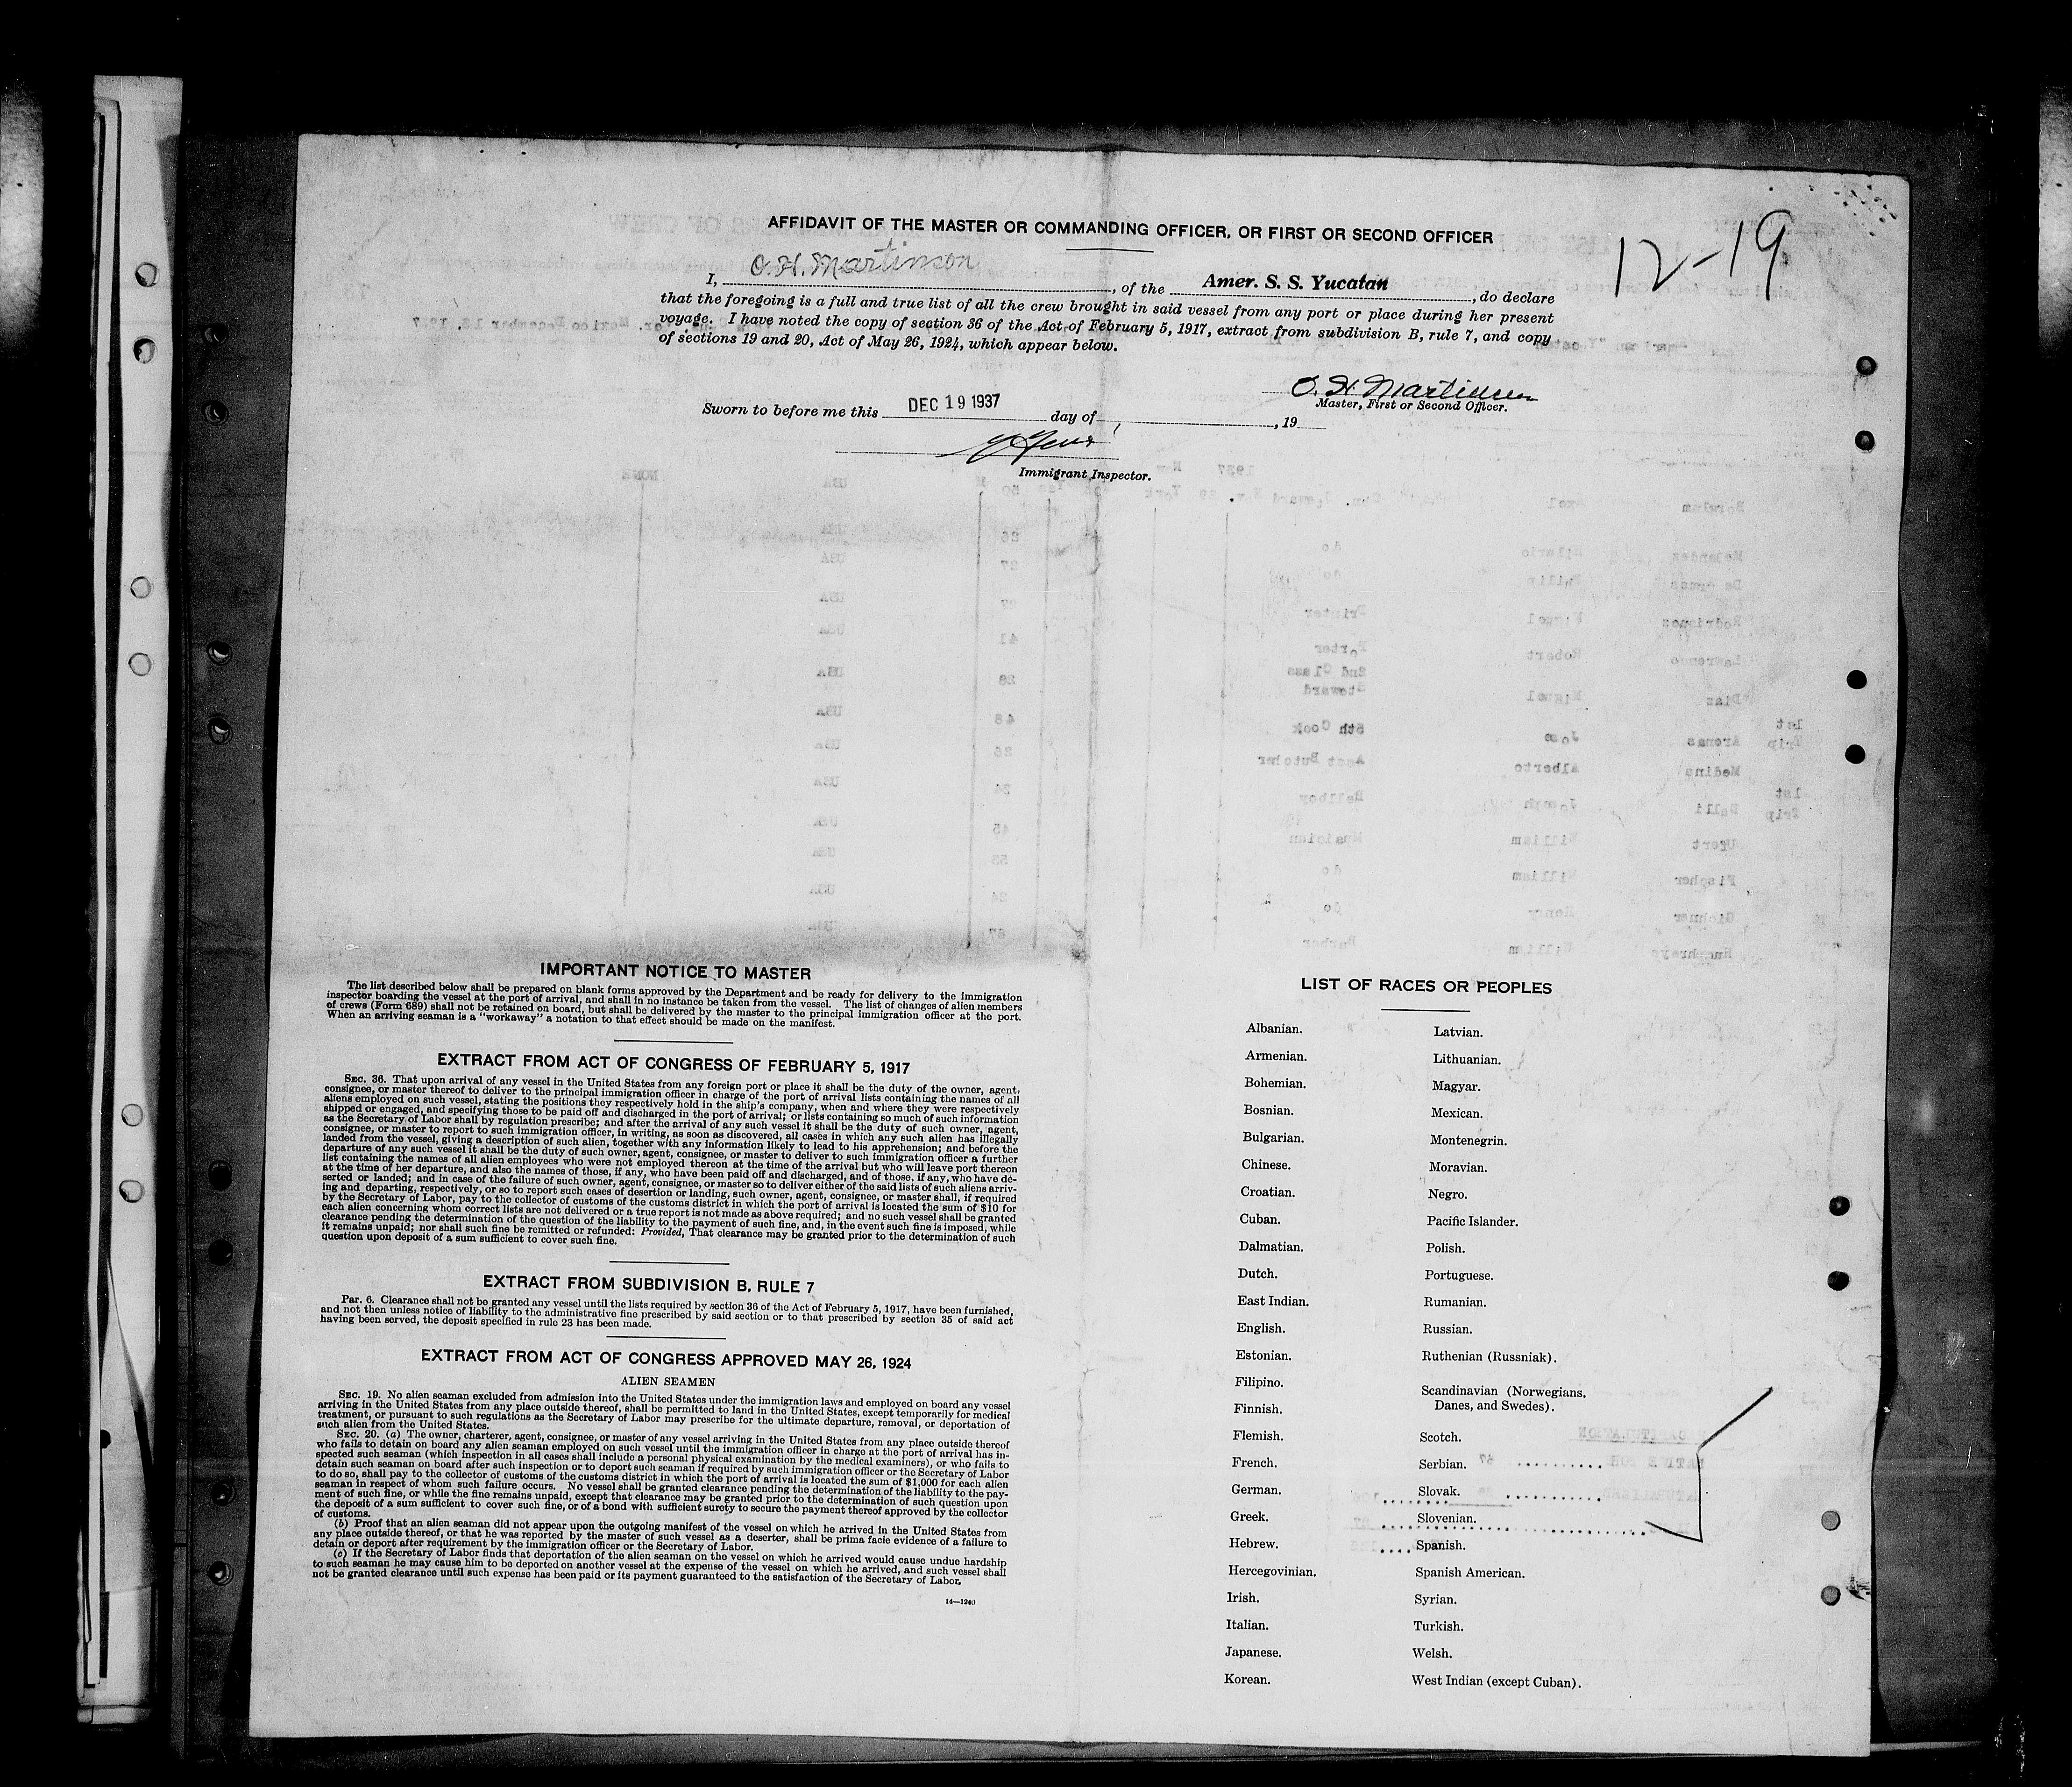 12-19
AFFIDAVIT OF THE MASTER OR COMMANDING OFFICER, OR FIRST OR SECOND OFFICER
I, O. H. Martinson, of the Amer. S. S. Yucatan, do declare
that the foregoing is a full and true list of all the crew brought in said vessel from any port or place during her present
voyage. I have noted the copy of section 36 of the Act of February 5, 1917, extract from subdivision B, rule 7, and copy
of sections 19 and 20, Act of May 26, 1924, which appear below.
O. H. Martinson
Master, First or Second Officer.
Sworn to before me this DEC 19 1937 day of , 19
Immigrant Inspector.
IMPORTANT NOTICE TO MASTER
The list described below shall be prepared on blank forms approved by the Department and be ready for delivery to the immigration
inspector boarding the vessel at the port of arrival, and shall in no instance be taken from the vessel. The list of changes of alien members
of crews (Form 689) shall not be retained on board, but shall be delivered by the master to the principal immigration officer at the port.
When an arriving seaman is a "workaway" a notation to that effect should be made on the manifest.
EXTRACT FROM ACT OF CONGRESS OF FEBRUARY 5, 1917
SEC. 36. That upon arrival of any vessel in the United States from any foreign port or place it shall be the duty of the owner, agent,
consignee, or master thereof to deliver to the principal immigration officer in charge of the port of arrival lists containing the names of all
aliens employed on such vessel, stating the positions they respectively hold in the ship's company, when and where they were respectively
shipped or engaged, and specifying those to be paid off and discharged in the port of arrival; or lists containing so much of such information
as the Secretary of Labor shall by regulation prescribe; and after the arrival of any such vessel it shall be the duty of such owner, agent,
consignee, or master to report to such immigration officer, in writing, as soon as discovered, all cases in which any such alien has illegally
landed from the vessel, giving a description of such alien, together with any information likely to lead to his apprehension; and before the
departure of any such vessel it shall be the duty of such owner, agent, consignee, or master to deliver to such immigration officer a further
list containing the names of all alien employees who were not employed thereon at the time of the arrival but who will leave port thereon
at the time of her departure, and also the names of those, if any, who have been paid off and discharged, and of those, if any, who have de-
serted or landed; and in case of the failure of such owner, agent, consignee, or master so to deliver either of the said lists of such aliens arriv-
ing and departing, respectively, or so to report such cases of desertion or landing, such owner, agent, consignee, or master shall, if required
by the Secretary of Labor, pay to the collector of customs of the customs district in which the port of arrival is located the sum of $10 for
each alien concerning whom correct lists are not delivered or a true report is not made as above required; and no such vessel shall be granted
clearance pending the determination of the question of the liability to the payment of such fine, and, in the event such fine is imposed, while
it remains unpaid; nor shall such fine be remitted or refunded: Provided, That clearance may be granted prior to the determination of such
question upon deposit of a sum sufficient to cover such fine.
EXTRACT FROM SUBDIVISION B, RULE 7
Par. 6. Clearance shall not be granted any vessel until the lists required by section 36 of the Act of February 5, 1917, have been furnished,
and not then unless notice of liability to the administrative fine prescribed by said section or to that prescribed by section 35 of said act
having been served, the deposit specified in rule 23 has been made.
EXTRACT FROM ACT OF CONGRESS APPROVED MAY 26, 1924
ALIEN SEAMEN
SEC. 19. No alien seaman excluded from admission into the United States under the immigration laws and employed on board any vessel
arriving in the United States from any place outside thereof, shall be permitted to land in the United States, except temporarily for medical
treatment, or pursuant to such regulations as the Secretary of Labor may prescribe for the ultimate departure, removal, or deportation of
such alien from the United States.
SEC. 20. (a) The owner, charterer, agent, consignee, or master of any vessel arriving in the United States from any place outside thereof
who fails to detain on board any alien seaman employed on such vessel until the immigration officer in charge at the port of arrival has in-
spected such seaman (which inspection in all cases shall include a personal physical examination by the medical examiners), or who fails to
detain such seaman on board after such inspection or to deport such seaman if required by such immigration officer or the Secretary of Labor
to do so, shall pay to the collector of customs of the customs district in which the port of arrival is located the sum of $1,000 for each alien
seaman in respect of whom such failure occurs. No vessel shall be granted clearance pending the determination of the liability to the pay-
ment of such fine, or while the fine remains unpaid, except that clearance may be granted prior to the determination of such question upon
the deposit of a sum sufficient to cover such fine, or of a bond with sufficient surety to secure the payment thereof approved by the collector
of customs.
(b) Proof that an alien seaman did not appear upon the outgoing manifest of the vessel on which he arrived in the United States from
any place outside thereof, or that he was reported by the master of such vessel as a deserter, shall be prima facie evidence of a failure to
detain or deport after requirement by the immigration officer or the Secretary of Labor.
(c) If the Secretary of Labor finds that deportation of the alien seaman on the vessel on which he arrived would cause undue hardship
to such seaman he may cause him to be deported on another vessel at the expense of the vessel on which he arrived, and such vessel shall
not be granted clearance until such expense has been paid or its payment guaranteed to the satisfaction of the Secretary of Labor.
14—1240
LIST OF RACES OR PEOPLES
Albanian.
Armenian.
Bohemian.
Bosnian.
Bulgarian.
Chinese.
Croatian.
Cuban.
Dalmatian.
Dutch.
East Indian.
English.
Estonian.
Filipino.
Finnish.
Flemish.
French.
German.
Greek.
Hebrew.
Hercegovinian.
Irish.
Italian.
Japanese.
Korean.
Latvian.
Lithuanian.
Magyar.
Mexican.
Montenegrin.
Moravian.
Negro.
Pacific Islander.
Polish.
Portuguese.
Rumanian.
Russian.
Ruthenian (Russniak).
Scandinavian (Norwegians,
Danes, and Swedes).
Scotch.
Serbian.
Slovak.
Slovenian.
Spanish.
Spanish American.
Syrian.
Turkish.
Welsh.
West Indian (except Cuban).